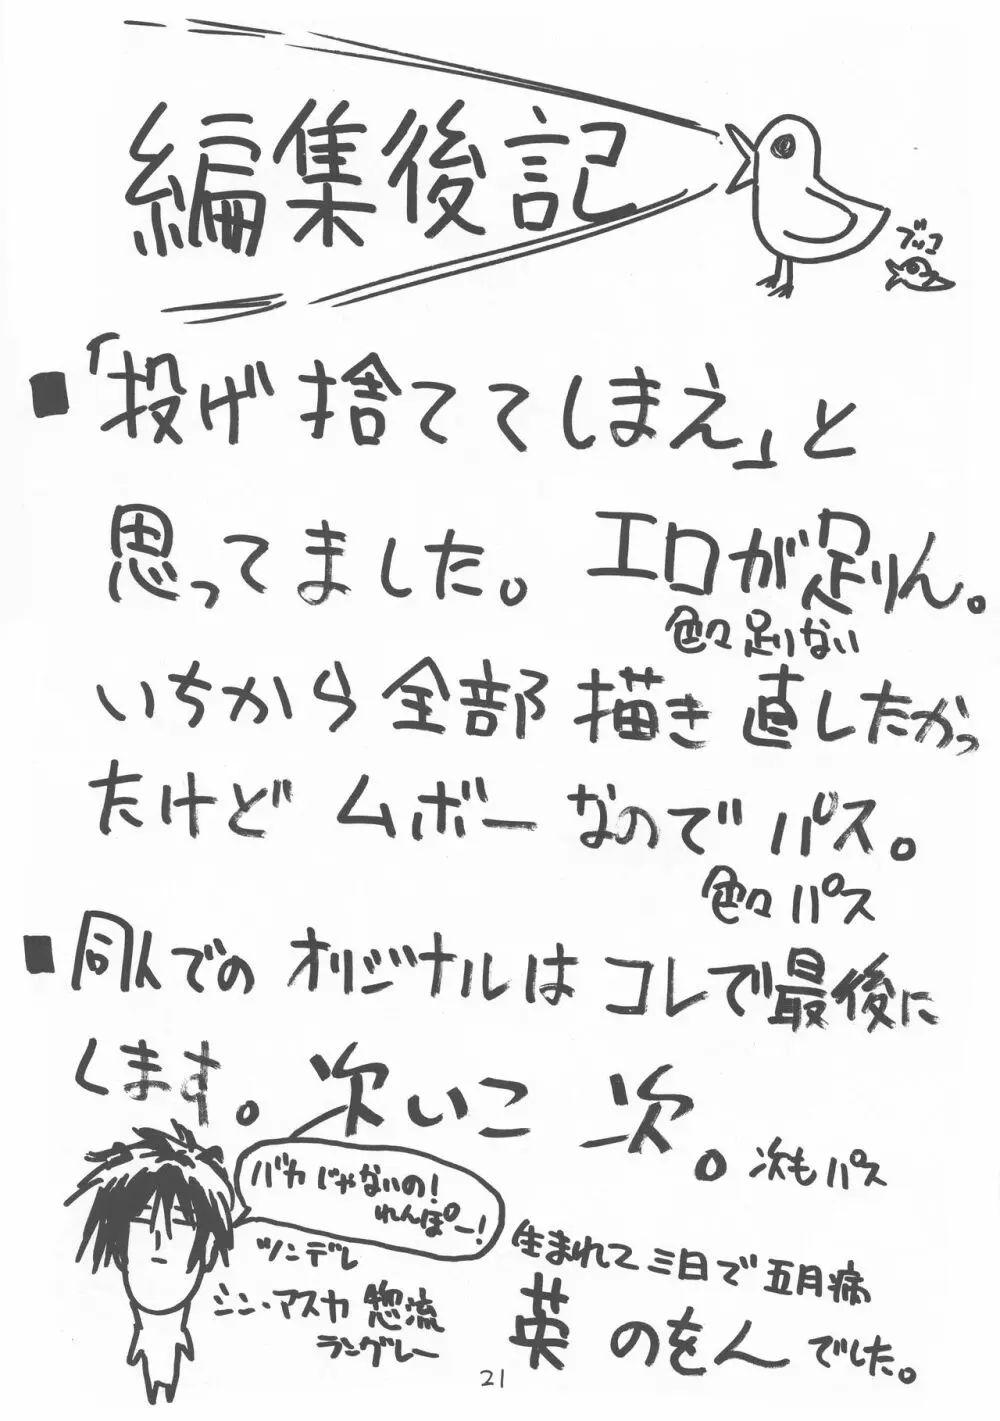 編集後記
ブッコ
■「投げ捨ててしまえ」と
思ってました。エロが足りん。
色々足りない
いちから全部描き直したかっ
たけど ムボーなので パス。
色々パス
■同人でのオリジナルはコレで最後に
します。次いこ 次。次もパス
バカじゃないの!
れんぽー!
ツンデレ
シン・アスカ 惣流
ラングレー
生まれて三日で五月病
英のをん でした。
21